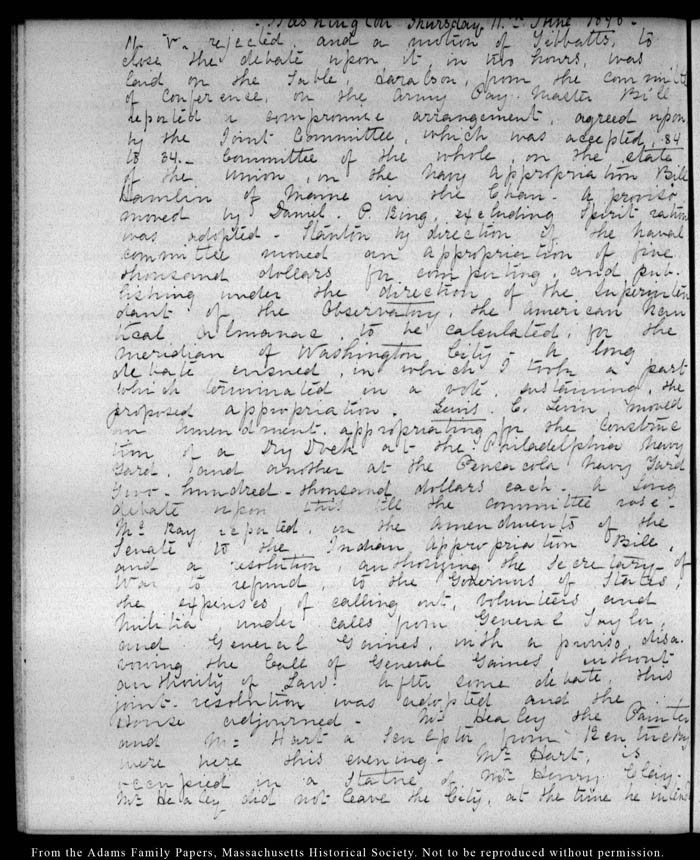 Washington Thursday 11th June 1846.
V. rejected, and a motion of Tibbatts, to
close the debate upon it, in two hours, was
laid on the Table, Haralson, from the committee
of Conference, on the Army Pay Master Bill
reported a compromise arrangement, agreed upon
by the Joint Committee, which was accepted, 84
to 34. Committee of the whole, on the state
of the Union, on the Navy Appropriation Bill
Hamlin of Maine in the Chair. A proviso
moved by Daniel. P. King, excluding Spirit ration
was adopted - Stanton by direction of the naval
committee moved an appropriation of five
thousand dollars for computing, and pub-
lishing under the direction of the Superinten
dant of the Observatory, the American Nau
tical Almanac, to be calculated, for the
meridian of Washington City - A long
debate ensued, in which I took a part
which terminated in a vote, sustaining, the
proposed appropriation. Lewis. C. Levin, moved
an Amendment, appropriating for the construc
tion of a Dry Dock at the Philadelphia Navy
Yard, and another at the Pensacola Navy Yard
two-hundred-thousand dollars each - A long
debate upon this till the committee rose -
McKay reported, on the amendments of the
Senate to the Indian appropriation Bill,
and a resolution, authorizing the Secretary of
War, to refund, to the Governors of States,
the expenses of calling out, volunteers and
Militia, under calls from General Taylor,
and General Gaines, with a proviso, disa
vowing the Call of General Gaines, without
authority of Law. After some debate, this
joint-resolution was adopted and the
House adjourned - Mr Healey the Painter
and Mr Hart a Sculptor from Kentucky
were here this evening - Mr Hart, is
occupied in a Statue of Mr Henry Clay -
Mr Healey did not leave the City, at the time he inten
From the Adams Family Papers, Massachusetts Historical Society. Not to be reproduced without permission.